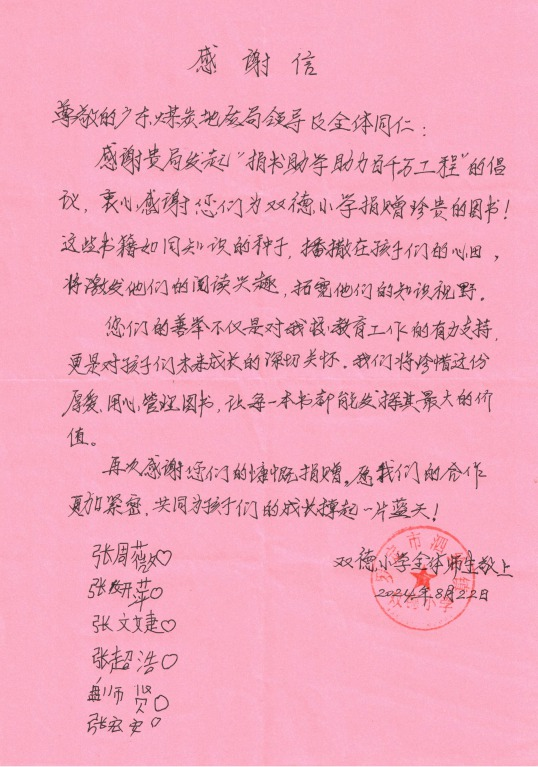 感谢信
尊敬的广东煤炭地质局领导及全体同仁：
感谢贵局发起“捐书助学助力百千万工程”的倡
议，衷心感谢您们为双德小学捐赠珍贵的图书！
这些书籍如同知识的种子，播撒在孩子们的心田，
将激发他们的阅读兴趣，拓宽他们的知识视野。
您们的善举不仅是对我校教育工作的有力支持，
更是对孩子们未来成长的深切关怀。我们将珍惜这份
厚爱，用心管理图书，让每一本书都能发挥其最大的价
值。
再次感谢您们的慷慨捐赠。愿我们的合作
更加紧密，共同为孩子们的成长撑起一片蓝天！
双德小学全体师生敬上
2024年8月22日
张周薇
张妍萍
张文婕
张超浩
师贤
张宏安